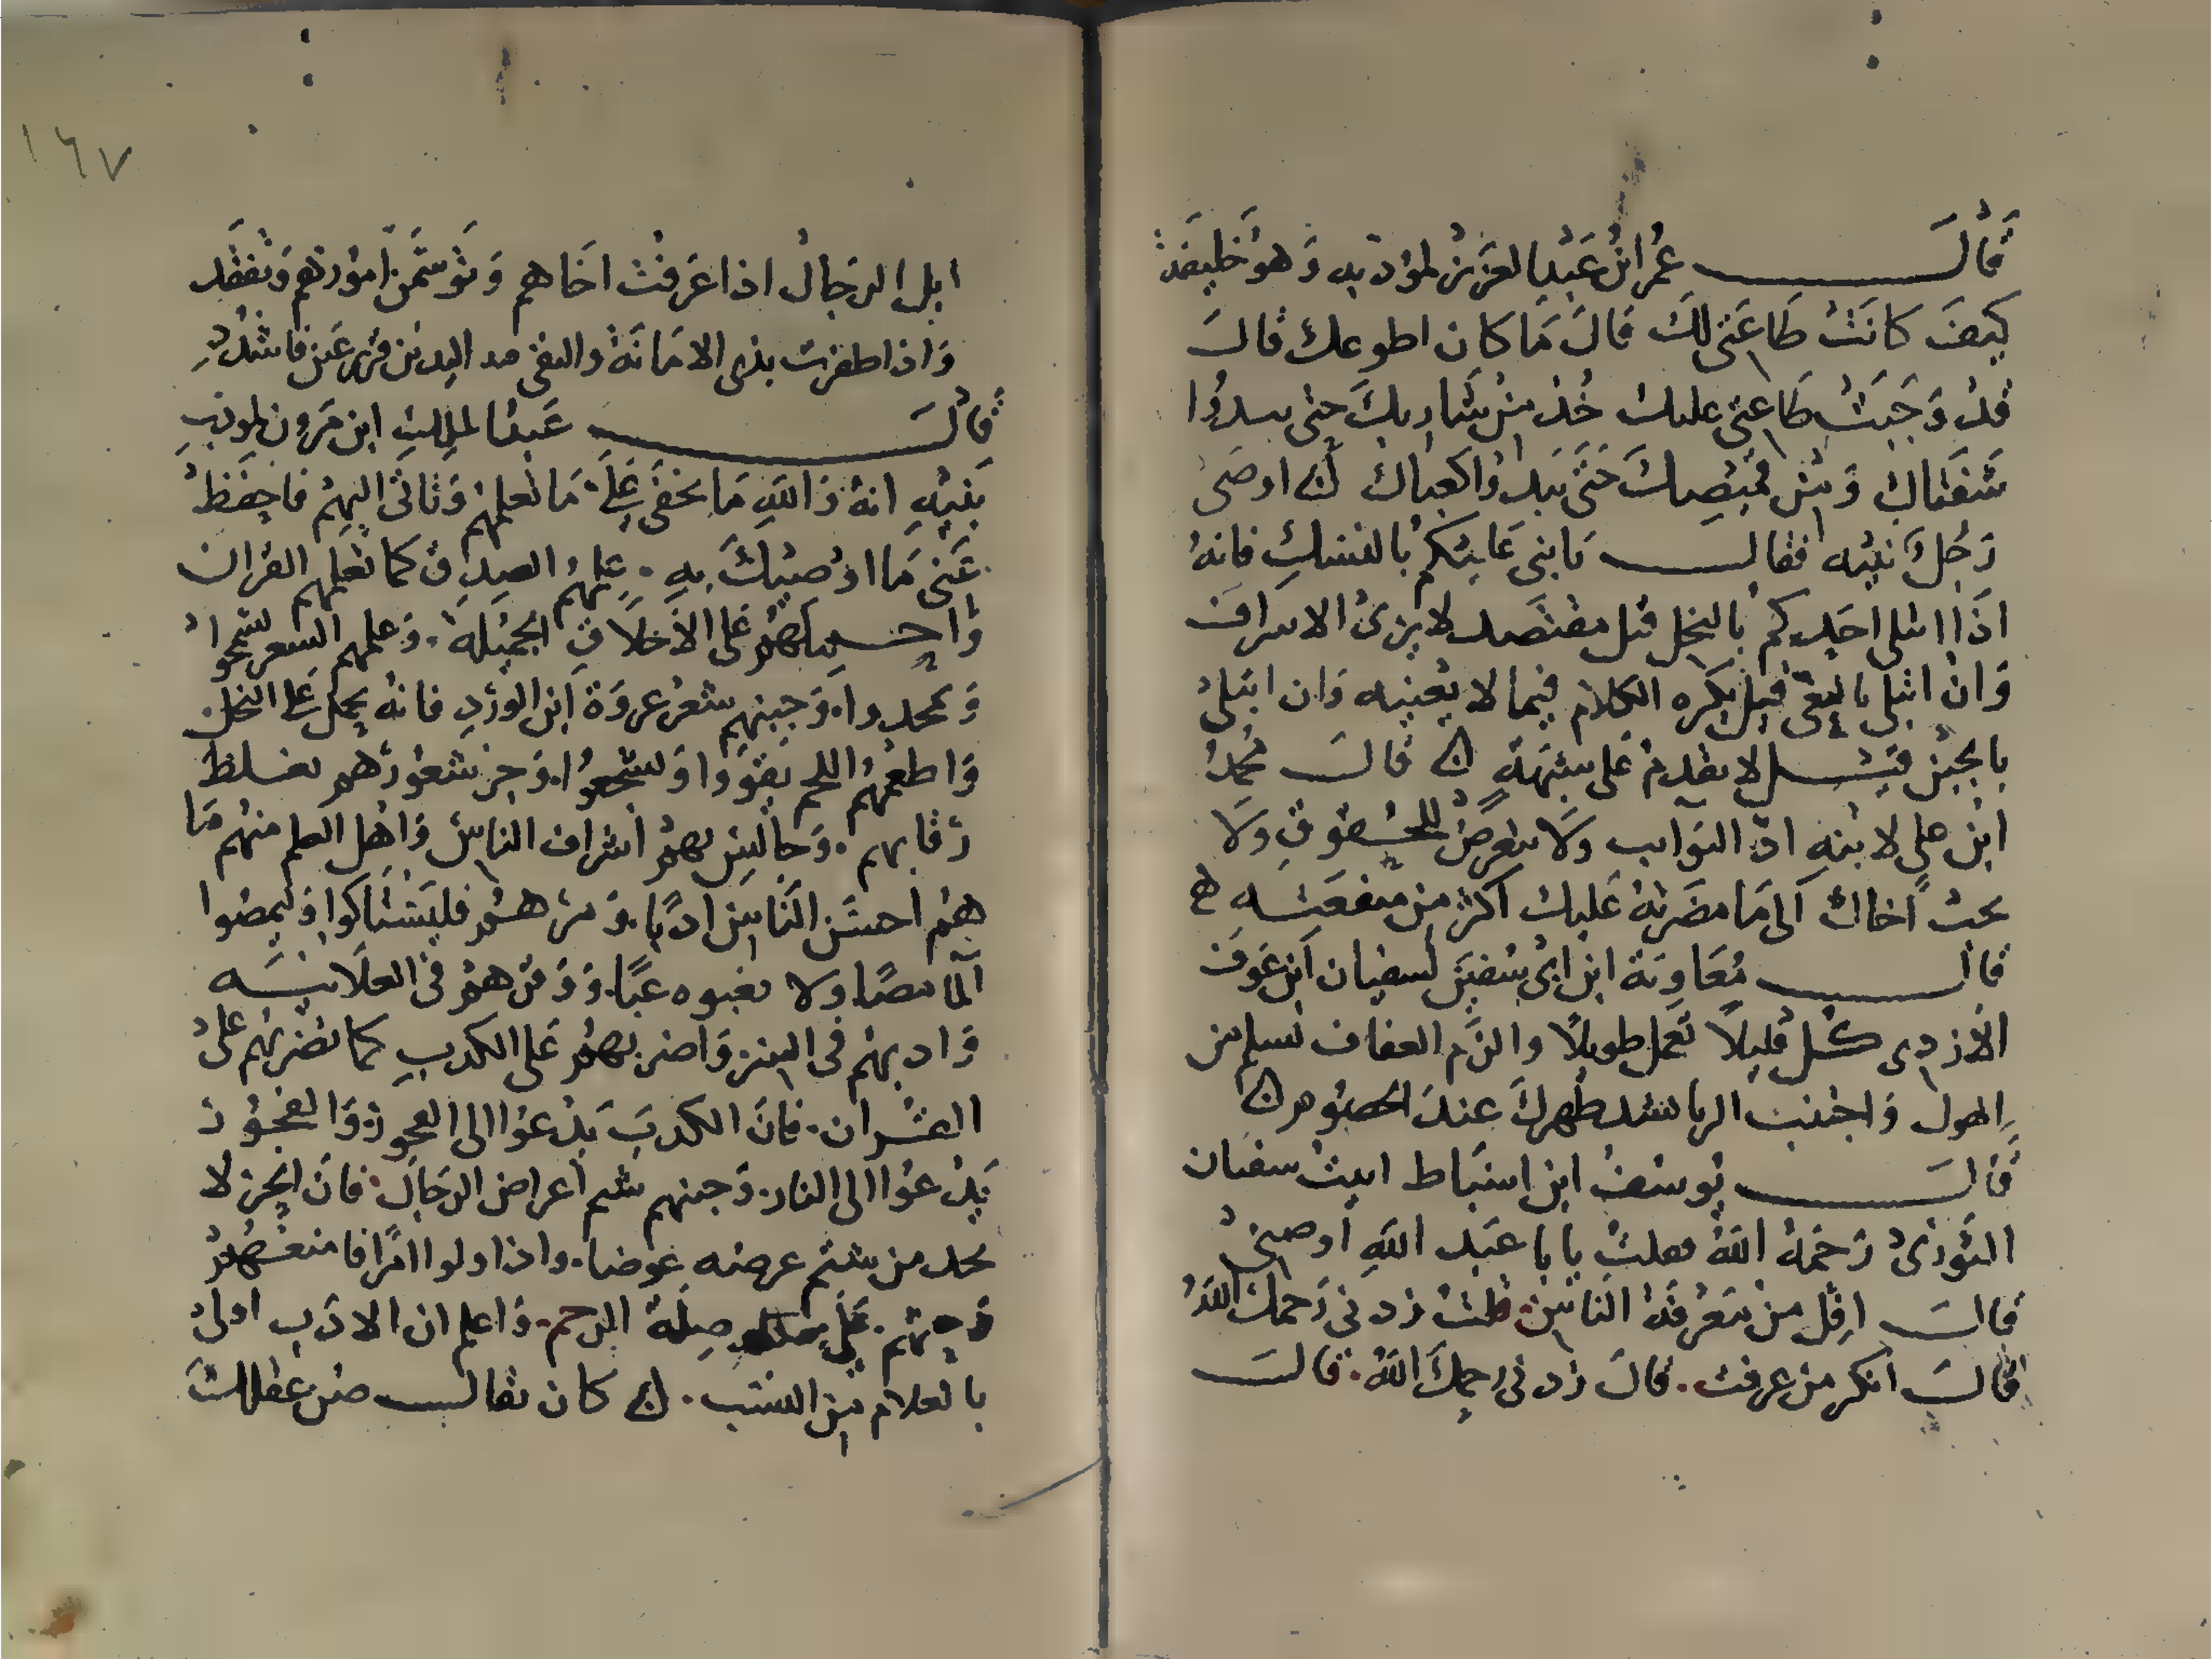 قال عمر ابن عبد العزيز لمؤدبه وهو خليفة
كيف كانت طاعتي لك قال ما كان اطوعك قال
قد وجبت طاعتي عليك خذ من شاربك حتى يبدوا
شفتاك ومن قميصك حتى يبدوا كعباك اوصى
رجل بنيه فقال يا بني عليكم بالنسك فانه
اذا ابتلى احدكم بالبخل قيل مقتصد لا يرى الاسراف
وان ابتلى بالعي قيل يكره الكلام فيما لا يعنيه وان ابتلى
بالجبن قيل لا يقدم على شبهة قال محمد
ابن علي لابنه ادّ النوايب ولا تتعرض للحقوق ولا
تجب اخاك الى ما مضرته عليك اكثر من منفعته
قال معاوية ابن ابي سفين لسفيان ابن عوف
الازدي كل قليلا تعمل طويلا والزم العفاف تسلم من
القول واجتنب الريا يشتد ظهرك عند الخصوم
قال يوسف ابن اسباط اتيت سفيان
الثوري رحمه الله فقلت يابا عبد الله اوصني
قال اقل من معرفة الناس قلت زدني رحمك الله
قال انكر من عرفت . قال زدني رحمك الله . قال
١٦٧
ابل الرجال اذا عرفت اخاهم وتوسمن امورهم وتفقد
واذا ظفرت بذي الامانة والتقى فبه اليدين قرير عين فاشدد
قال عبد الملك ابن مرون لمودب
بنيه انه والله ما يخفى علي ما تعلمهم وتاتي اليهم فاحفظ
عني ما اوصيتك به . علمهم الصدق كما تعلمهم القران
واحملهم على الاخلاق الجميلة . وعلمهم الشعر يسمحوا
ويمجدوا . وجنبهم شعر عروة ابن الورد فانه يحمل على البخل
واطعمهم اللحم يقووا ويشجعوا . وجز شعورهم تغلظ
رقابهم . وجالس بهم اشراف الناس واهل العلم منهم فا
هم احسن الناس ادبا . ومرهم فليستاكوا وليمصوا
الما مصا ولا يعبوه عبا . ووقرهم في العلانيه
وادبهم في السر واضربهم على الكذب كما تضربهم على
القران . فان الكذب يدعوا الى الفجور . والفجور
يدعوا الى النار . وجنبهم شتم اعراض الرجال . فان الحر لا
يجد من شتم عرضه عوضا . واذا ولوا امرا فامنعهم
من صلة الرحم . واعلم ان الادب اولى
بالغلام من النسب . كان يقال من عقلك